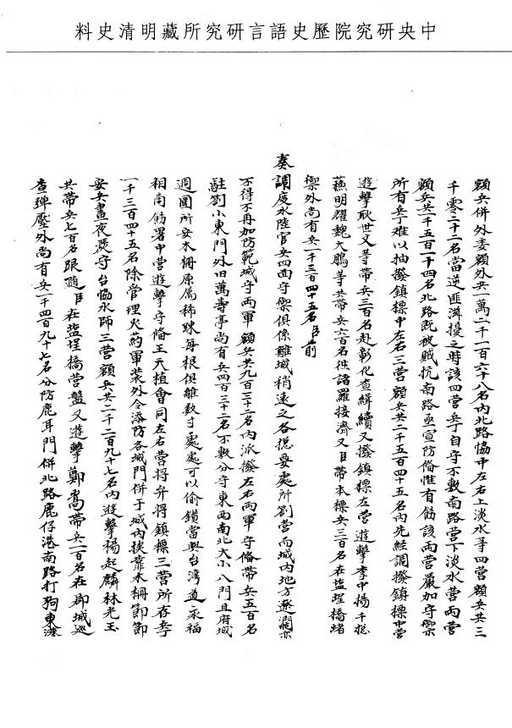 中央研究院歷史語言研究所藏明清史料
額兵併外委額外共一萬二千一百六十八名內北路協中左右上淡水等四營額兵共三
千零二十二名當逆匪滋擾之時該四營兵自守不敷南路營下淡水營兩營
額兵共一千五百二十四名北路既被賊抗南路亟宜防備惟有飭該兩營嚴加守禦
所有兵丁難以抽撥鎮標中左右三營額兵共二千五百四十五名內先經調撥鎮標中營
遊擊耿世文等帶兵三百名赴彰化查緝續又撥鎮標左營遊擊李中揚千總
蘇明耀魏大鵬等共帶兵六百名往諸羅接濟又臣帶本標兵三百名在鹽埕橋堵
禦外尚有兵一千三百四十五名臣前
奏調度水陸官兵四面守禦俱係離城稍遠之各扼要處所劄營而城內地方遼濶亦
不得不再加防範城守兩軍額兵共九百三十二名內派撥左右兩軍守備帶兵五百名
駐劄小東門外旧萬壽亭尚有兵四百三十二名不敷分守東西南北大小八門且府城
週圍所安木柵原属稀踈每根俱離数寸處處可以偷鑽當與台湾道永福
相商飭署中營遊擊守備王天植會同左右營將弁將鎮標三營所存兵丁
一千三百四十五名除管理火葯軍裝外令添防各城門併于城內挨靠木柵節節
安兵晝夜巡守台協水師三營額兵共二千二百九十七名內遊擊楊起麟林光玉
共帶兵七百名跟隨臣在鹽埕橋營盤又遊擊鄭嵩帶兵一百名在郡城巡
查彈壓外尚有兵一千四百九十七名分防鹿耳門併北路鹿仔港南路打狗東港